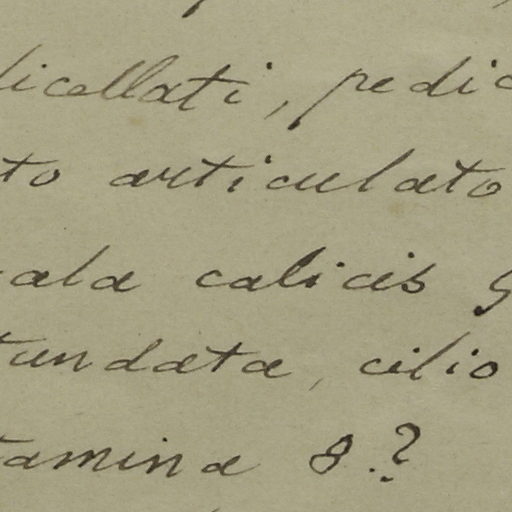 licellati, pedic
to articulato
ala calicis
tundata, cilio
tamina 8.?